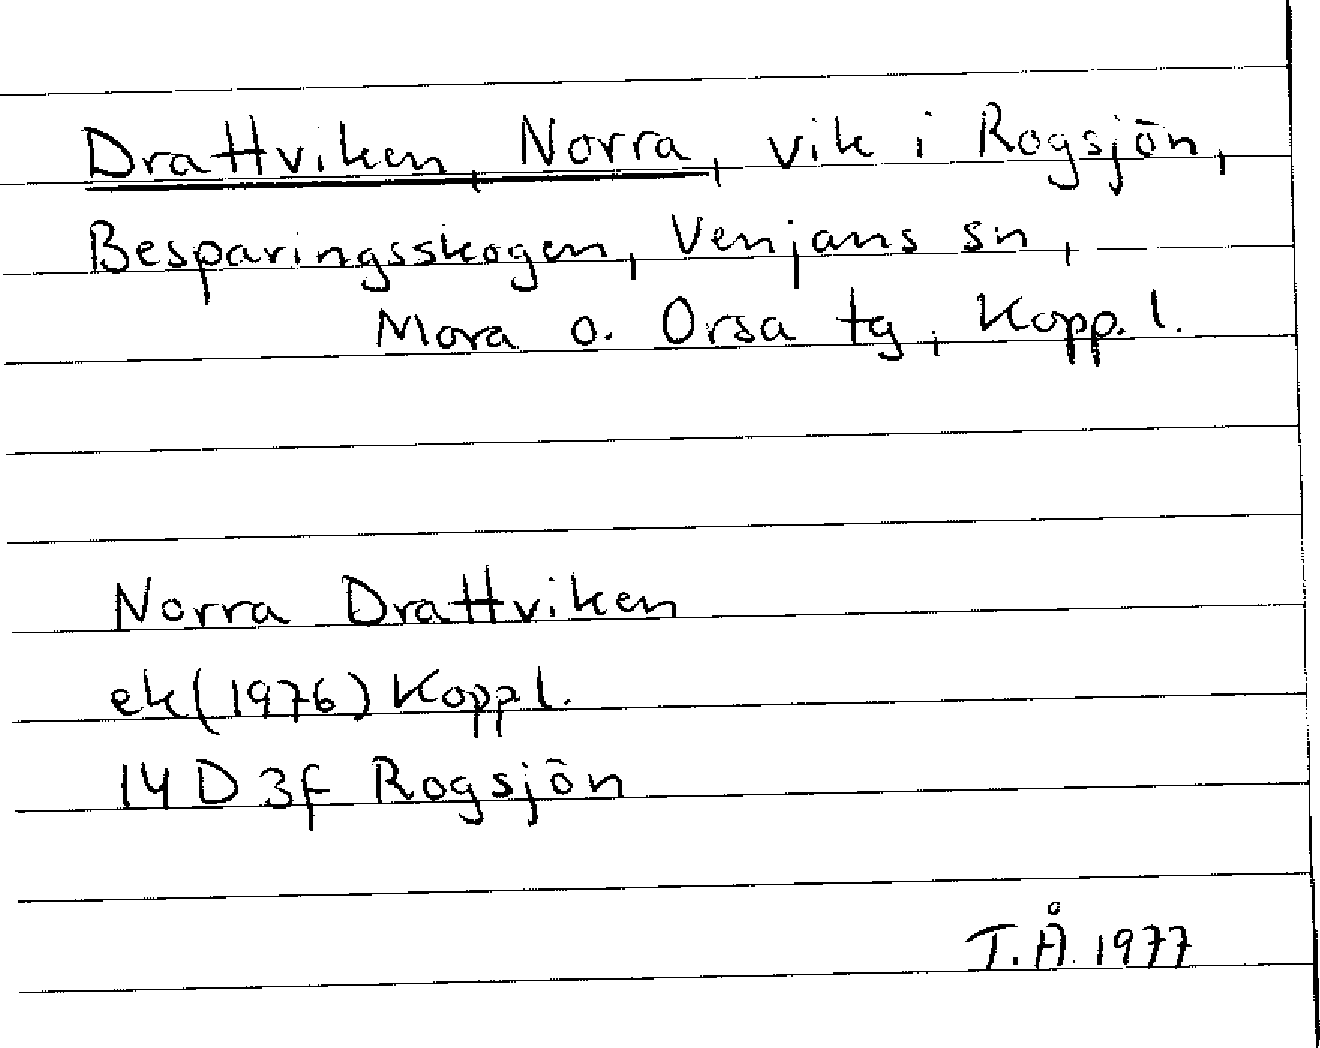 Drattviken, Norra, vik i Rogsjön,
Besparingsskogen, Venjans sn, —
Mora o. Orsa tg, Kopp. l.
Norra Drattviken
ek (1976) Kopp l.
14 D 3f Rogsjön
T.Å. 1977